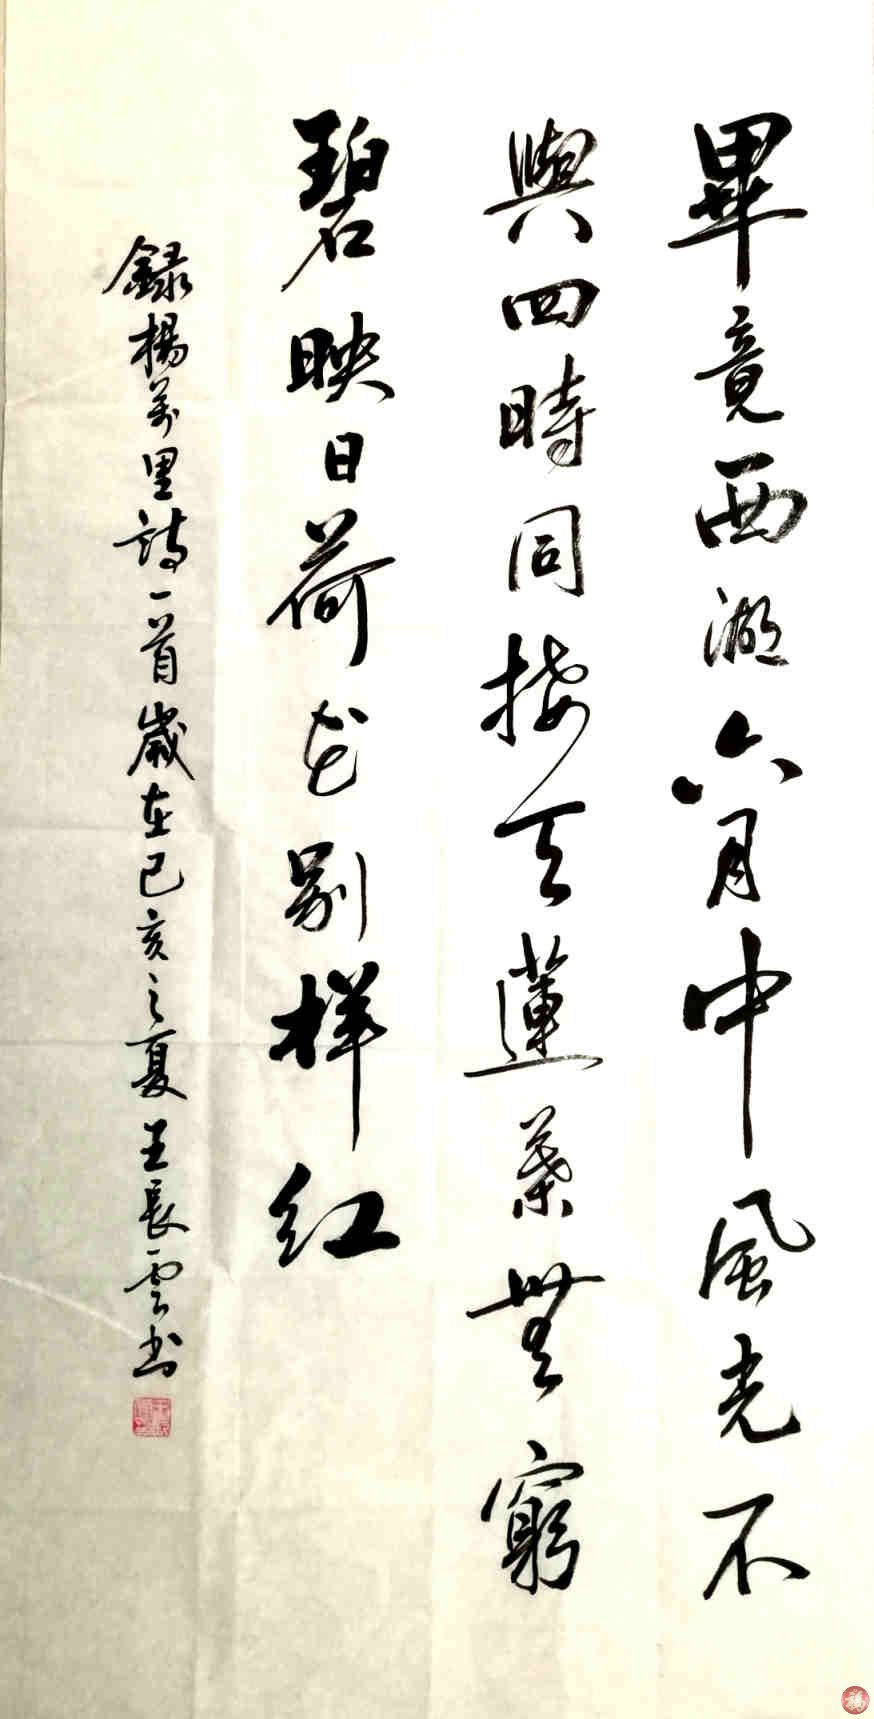 畢竟西湖六月中風光不
與四時同接天蓮葉無窮
碧映日荷花别样红
録楊万里詩一首歲在己亥之夏王長雲书